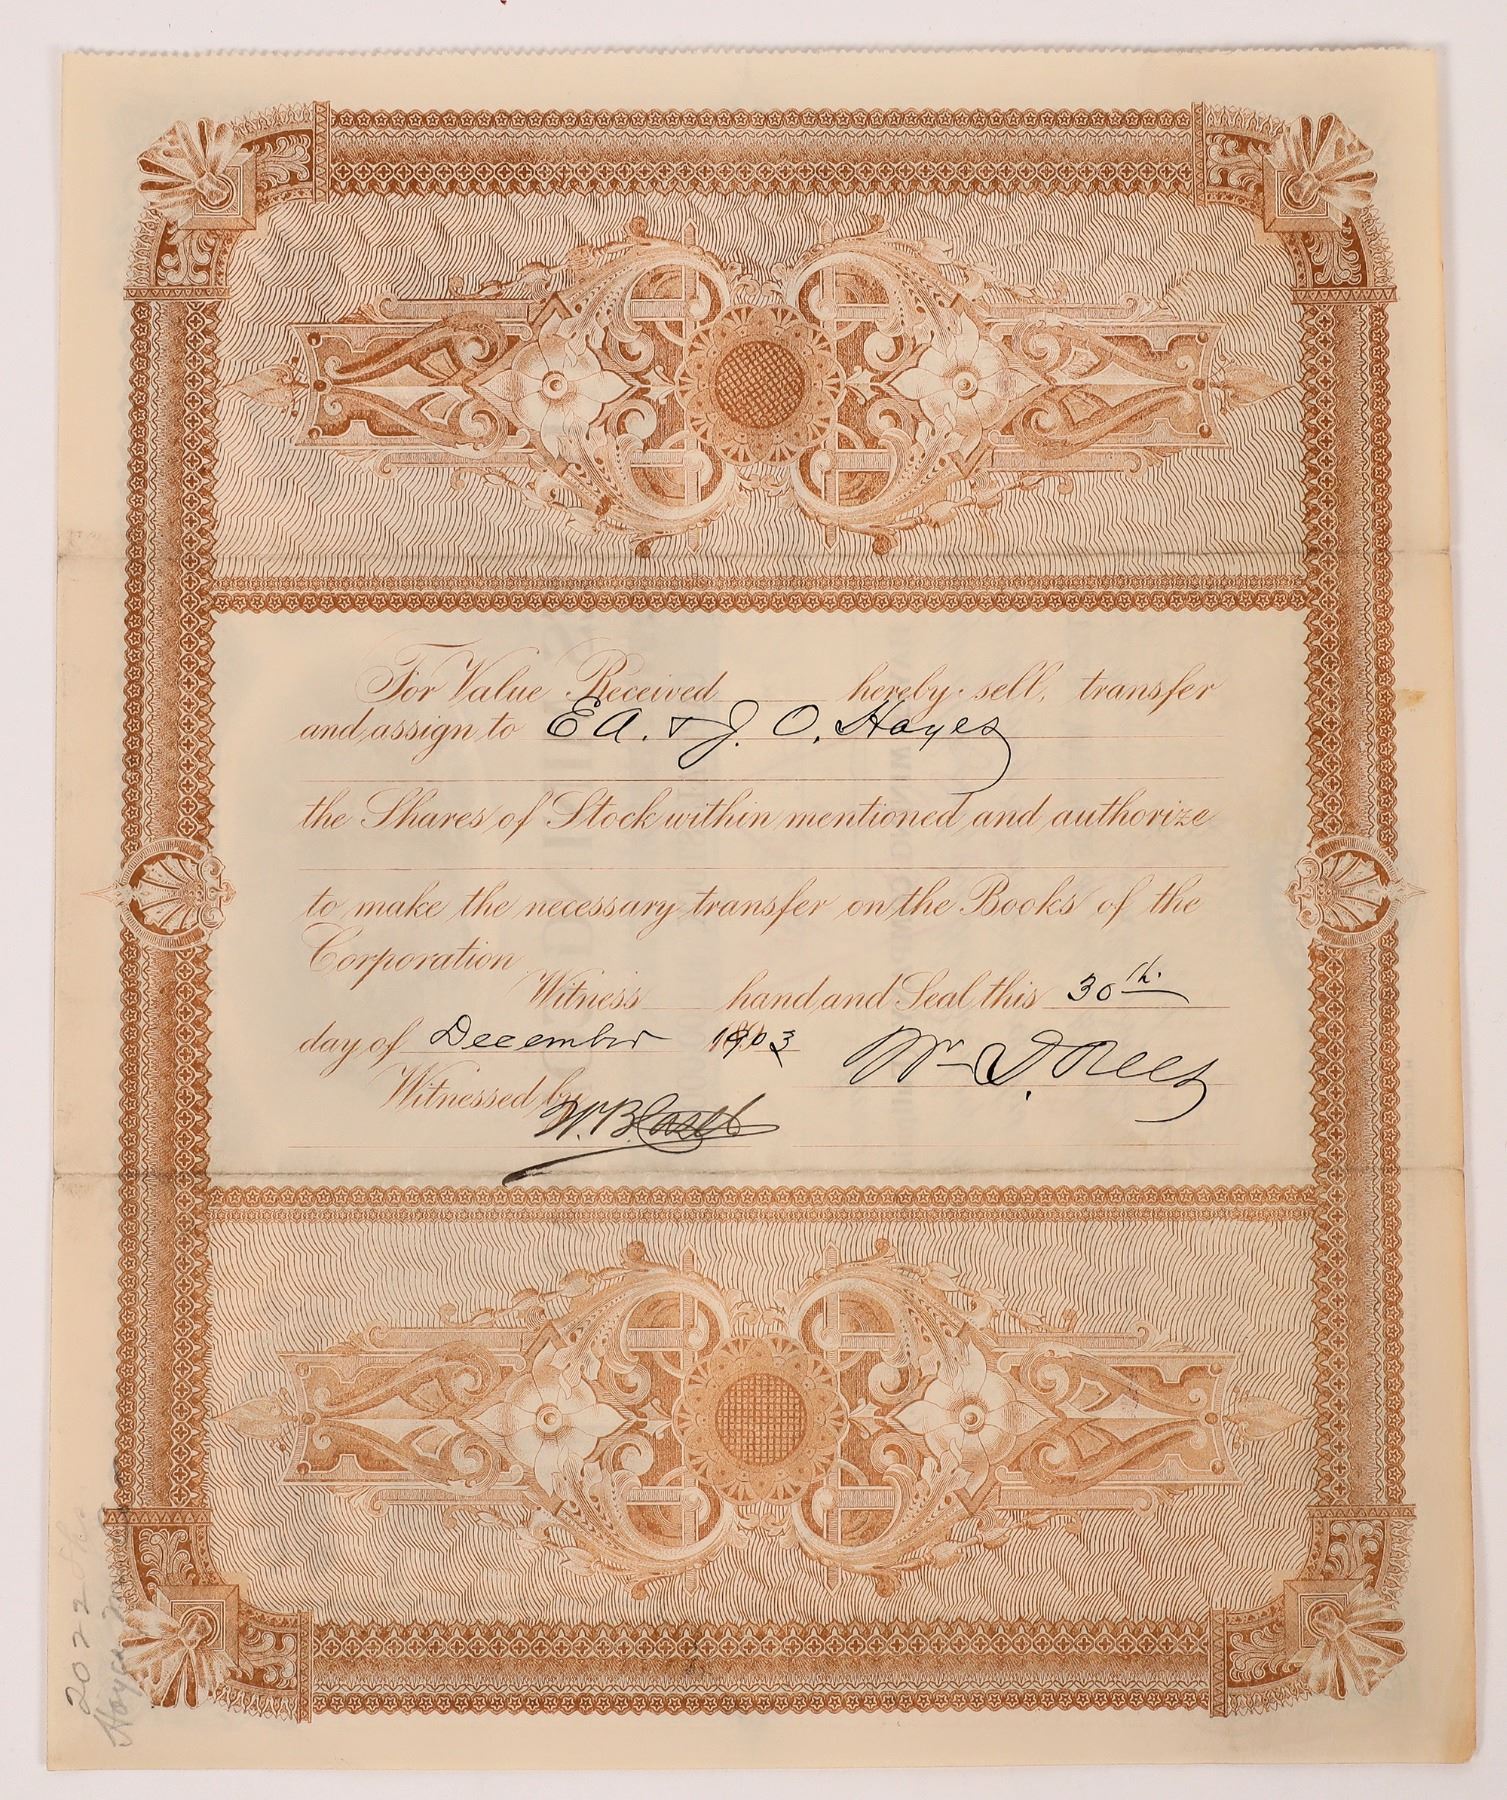 For Value Received hereby sell, transfer
and assign to E A. & J. O. Hayes
the Shares of Stock within mentioned and authorize
to make the necessary transfer on the Books of the
Corporation
Witness hand and Seal this 30th
day of December 1903
Wm J. Rees
Witnessed by
W. B.
2022 Shs.
Hayes